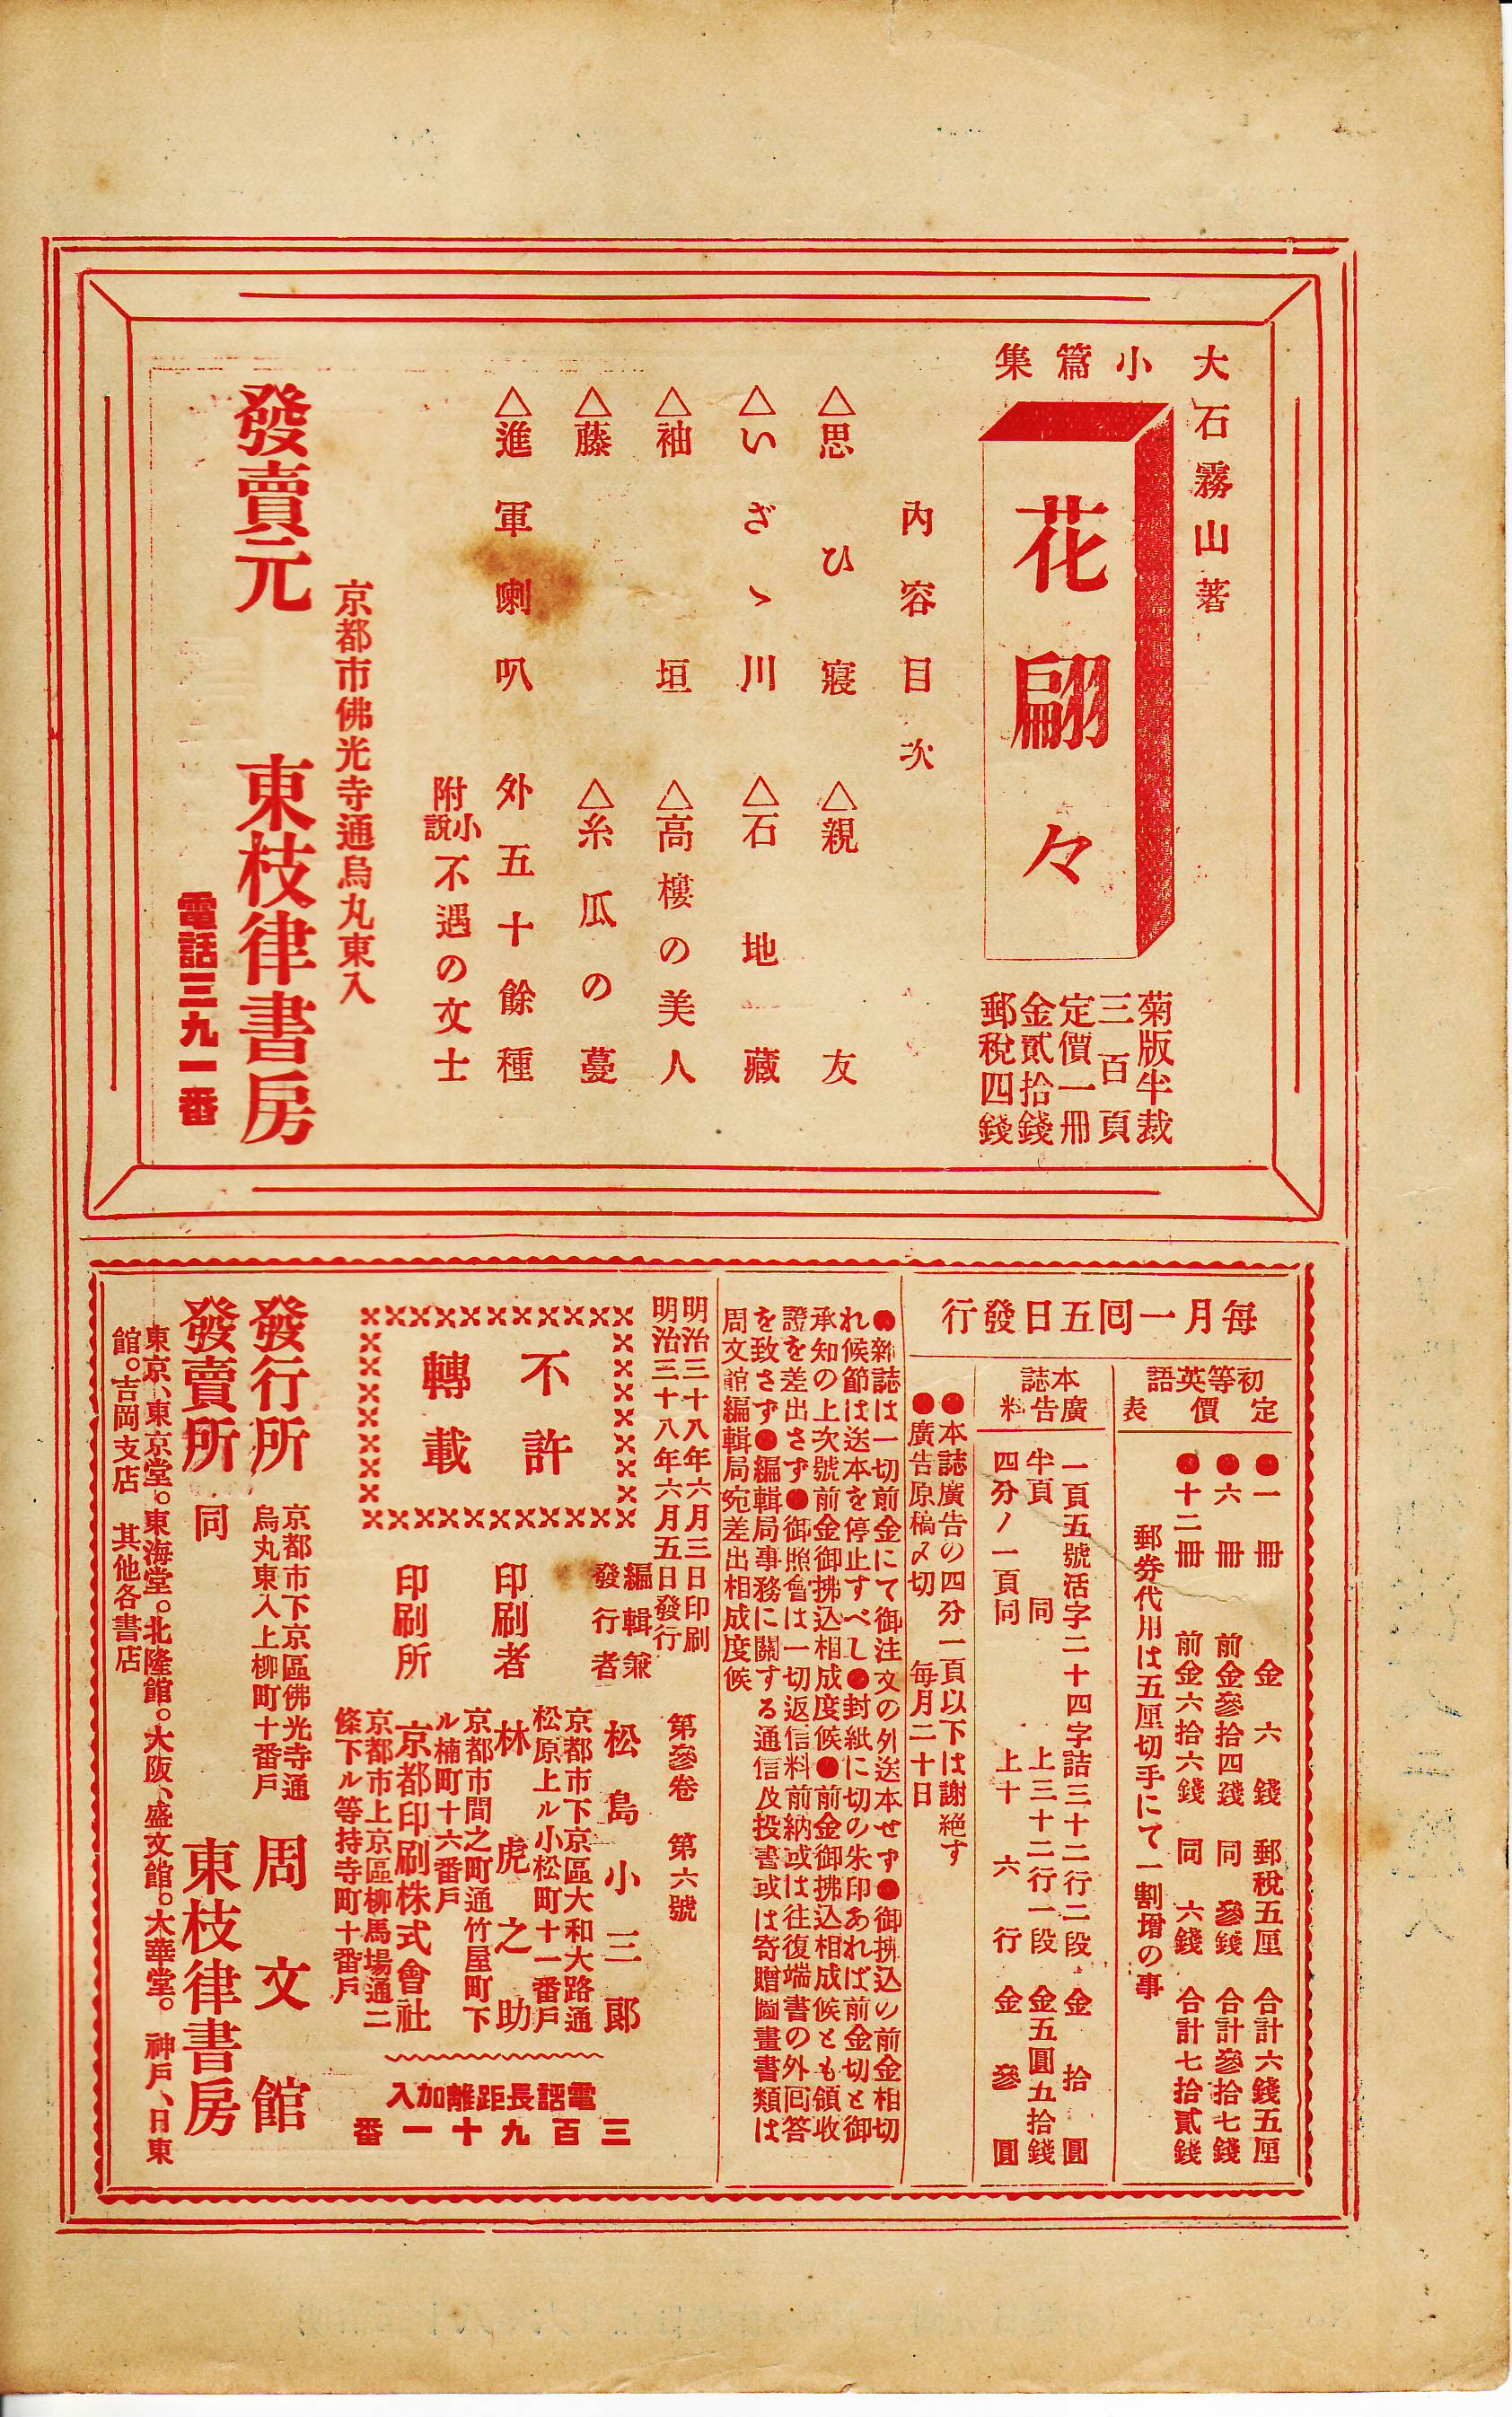 大石霧山著
小篇集
花翩々
菊版半裁
三百頁
定價一冊
金貳拾錢
郵稅四錢
內容目次
△思ひ寢　△親友
△いざゝ川　△石地藏
△袖垣　△高樓の美人
△藤　△糸瓜の蔓
△進軍喇叭　外五十餘種
附小說　不遇の文士
京都市佛光寺通烏丸東入
發賣元　東枝律書房
電話三九一番
每月一回五日發行
初等英語
定價表
●一冊　金六錢　郵稅五厘　合計六錢五厘
●六冊　前金參拾四錢　同參錢　合計參拾七錢
●十二冊　前金六拾六錢　同六錢　合計七拾貳錢
郵券代用は五厘切手にて一割增の事
本誌
廣告料
一頁五號活字二十四字詰三十二行二段　金拾圓
半頁　同　上三十二行一段　金五圓五拾錢
四分ノ一頁同　上十六行　金參圓
●本誌廣告の四分一頁以下は謝絕す
●廣告原稿〆切　每月二十日
●雜誌は一切前金にて御注文の外送本せず●御拂込の前金相切
れ候節は送本を停止すべし●封紙に切の朱印あれば前金切と御
承知の上次號前金御拂込相成度候●前金御拂込相成候とも領收
證を差出さず●御照會は一切返信料前納或は往復端書の外回答
を致さず●編輯局事務に關する通信及投書或は寄贈圖畫書類は
周文館編輯局宛差出相成度候
明治三十八年六月三日印刷
明治三十八年六月五日發行
第參卷　第六號
不許
轉載
編輯兼
發行者　松島小三郎
京都市下京區大和大路通
松原上ル小松町十一番戶
印刷者　林虎之助
京都市間之町通竹屋町下
ル楠町十六番戶
印刷所　京都印刷株式會社
京都市上京區柳馬場通二
條下ル等持寺町十番戶
電話長距離加入
三百九十一番
發行所　京都市下京區佛光寺通
烏丸東入上柳町十番戶　周文館
發賣所　同　東枝律書房
東京、東京堂。東海堂。北隆館。大阪、盛文館。大華堂。神戶、日東
館。吉岡支店　其他各書店